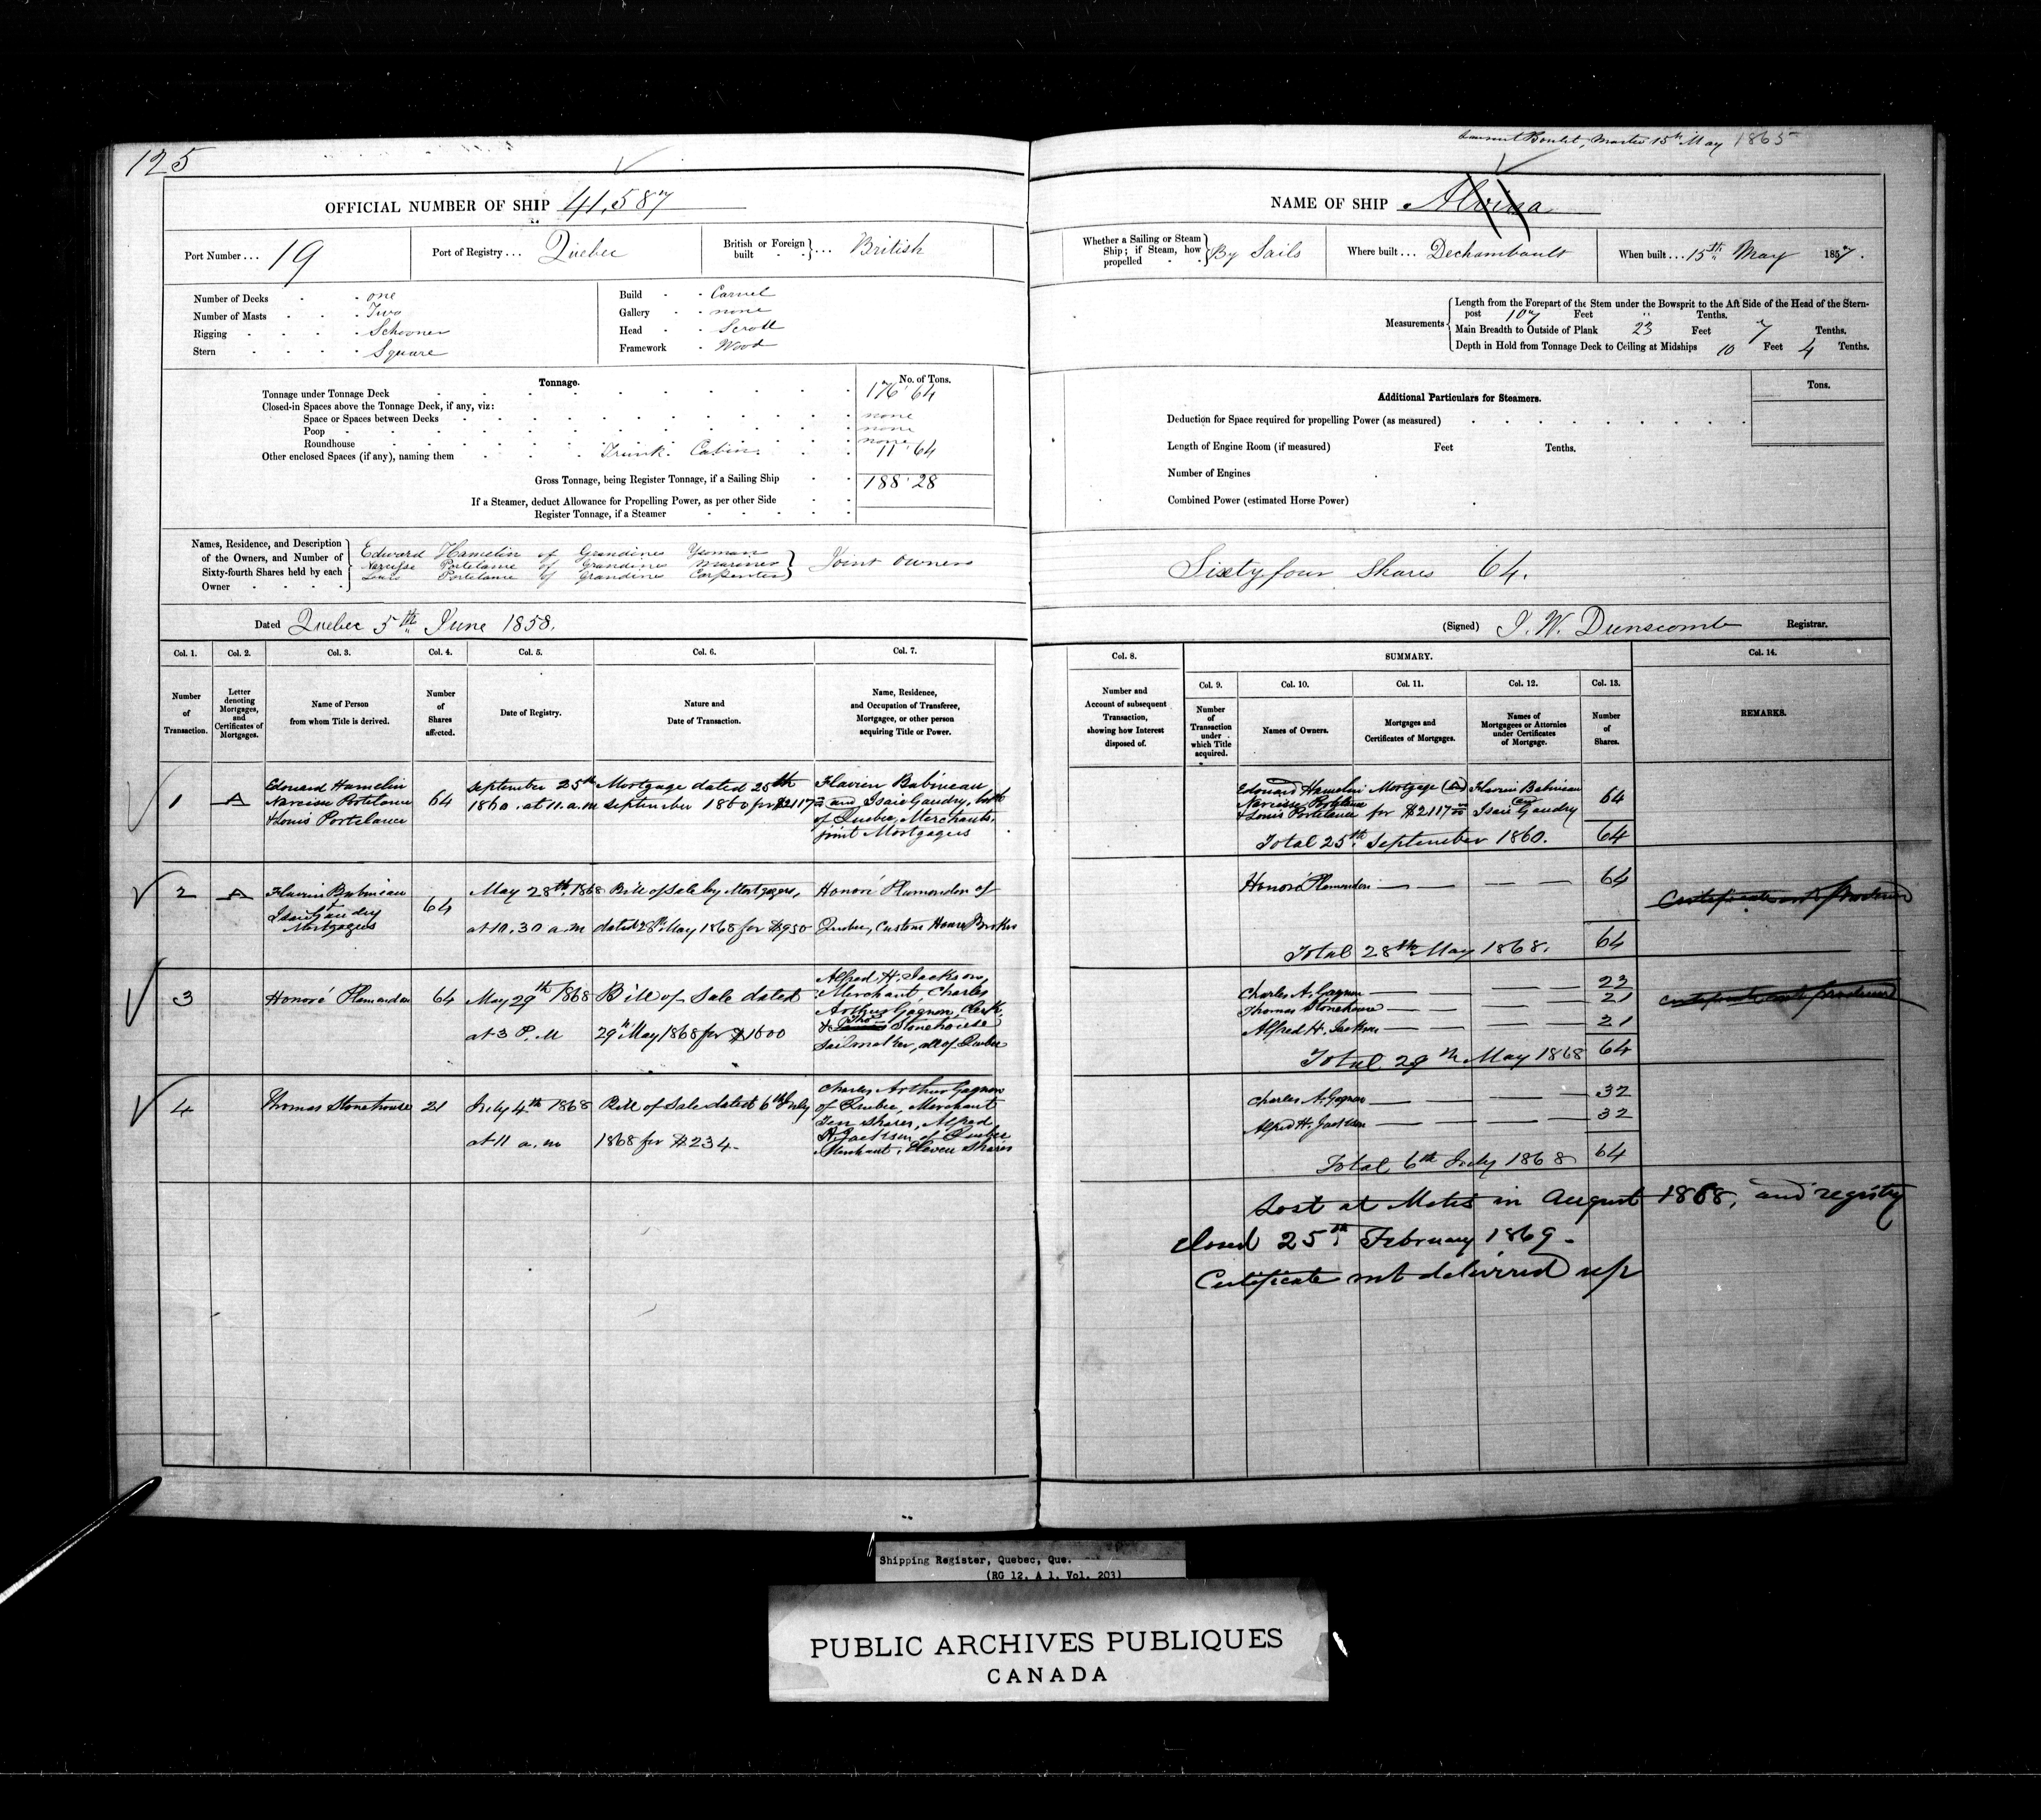 125
Master 15th May 1865
OFFICIAL NUMBER OF SHIP 41,587
NAME OF SHIP Alvina
Port Number ... 19
Port of Registry ... Quebec
British or Foreign built ... British
Whether a Sailing or Steam Ship; if Steam, how propelled By Sails
Where built ... Dechambault
When built ... 15th May 1857.
Number of Decks one
Number of Masts Two
Rigging Schooner
Stern Square
Build Carvel
Gallery none
Head Scroll
Framework Wood
Measurements
Length from the Forepart of the Stem under the Bowsprit to the Aft Side of the Head of the Stern-
post 107 Feet " Tenths.
Main Breadth to Outside of Plank 23 Feet 7 Tenths.
Depth in Hold from Tonnage Deck to Ceiling at Midships 10 Feet 4 Tenths.
Tonnage. No. of Tons.
Tonnage under Tonnage Deck 176.64
Closed-in Spaces above the Tonnage Deck, if any, viz:
Space or Spaces between Decks none
Poop none
Roundhouse none
Other enclosed Spaces (if any), naming them Trunk Cabin 11.64
Gross Tonnage, being Register Tonnage, if a Sailing Ship 188.28
If a Steamer, deduct Allowance for Propelling Power, as per other Side
Register Tonnage, if a Steamer
Tons.
Additional Particulars for Steamers.
Deduction for Space required for propelling Power (as measured)
Length of Engine Room (if measured) Feet Tenths.
Number of Engines
Combined Power (estimated Horse Power)
Names, Residence, and Description
of the Owners, and Number of
Sixty-fourth Shares held by each
Owner
Edward Hamelin of Grondines Yeoman
Narcisse Portelance of Grondines Mariner
Louis Portelance of Grondines Carpenter
Joint Owners
Sixty four Shares 64.
Dated Quebec 5th June 1858.
(Signed) J. W. Dunscomb Registrar.
Col. 1. Col. 2. Col. 3. Col. 4. Col. 5. Col. 6. Col. 7.
Number of Transaction.
Letter denoting Mortgages, and Certificates of Mortgages.
Name of Person from whom Title is derived.
Number of Shares affected.
Date of Registry.
Nature and Date of Transaction.
Name, Residence, and Occupation of Transferee, Mortgagee, or other person acquiring Title or Power.
Col. 8. SUMMARY. Col. 14.
Col. 9. Col. 10. Col. 11. Col. 12. Col. 13.
Number and Account of subsequent Transaction, showing how Interest disposed of.
Number of Transaction under which Title acquired.
Names of Owners.
Mortgages and Certificates of Mortgages.
Names of Mortgagees or Attornies under Certificates of Mortgage.
Number of Shares.
REMARKS.
1 A
Edouard Hamelin
Narcisse Portelance
& Louis Portelance
64
September 25th
1860. at 11. a.m
Mortgage dated 25th
September 1860 for $2117
Flavien Babineau
and Isaie Gaudry, both
of Quebec, Merchants,
joint Mortgagees
Edouard Hamelin
Narcisse Portelance
& Louis Portelance
Mortgage (A)
for $2117
Flavien Babineau
and
Isaie Gaudry
64
Total 25th September 1860. 64
2 A
Flavien Babineau
&
Isaie Gaudry
Mortgagees
64
May 28th 1868
at 10.30 a.m
Bill of Sale by Mortgagees,
dated 28th May 1868 for $950
Honoré Plamondon of
Quebec, Custom House Broker
Honoré Plamondon 64
Certificate not produced
Total 28th May 1868. 64
3
Honoré Plamondon
64
May 29th 1868
at 3 P.M
Bill of Sale dated
29th May 1868 for $1600
Alfred H. Jackson,
Merchant, Charles
Arthur Gagnon, Clerk
& Thos Stonehouse
Sailmaker, all of Quebec
Charles A. Gagnon 22
Thomas Stonehouse 21
Alfred H. Jackson 21
Certificate not produced
Total 29th May 1868 64
4
Thomas Stonehouse
21
July 4th 1868
at 11 a.m
Bill of Sale dated 6th July
1868 for $234
Charles Arthur Gagnon
of Quebec, Merchant
Ten Shares, Alfred
H. Jackson of Quebec
Merchant, Eleven Shares
Charles A. Gagnon 32
Alfred H. Jackson 32
Total 6th July 1868 64
Lost at Metis in August 1868, and registry
closed 25th February 1869.
Certificate not delivered up
Shipping Register, Quebec, Que.
(RG 12, A 1, Vol. 203)
PUBLIC ARCHIVES PUBLIQUES
CANADA